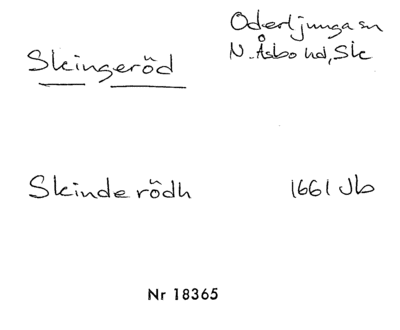 Skingeröd
Oderljunga sn
N. Åsbo hd, Sk
Skinderödh 1661 Jb
Nr 18365